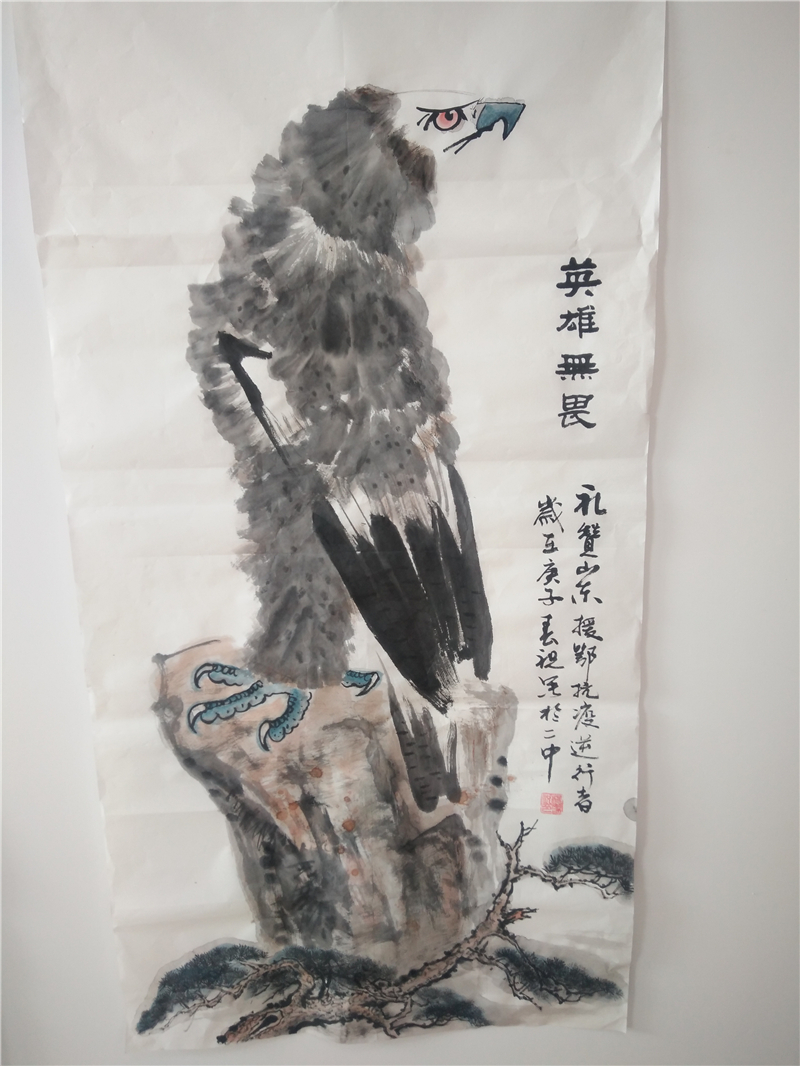 英雄無畏
礼赞山东援鄂抗疫逆行者
歲在庚子春祝军於二中